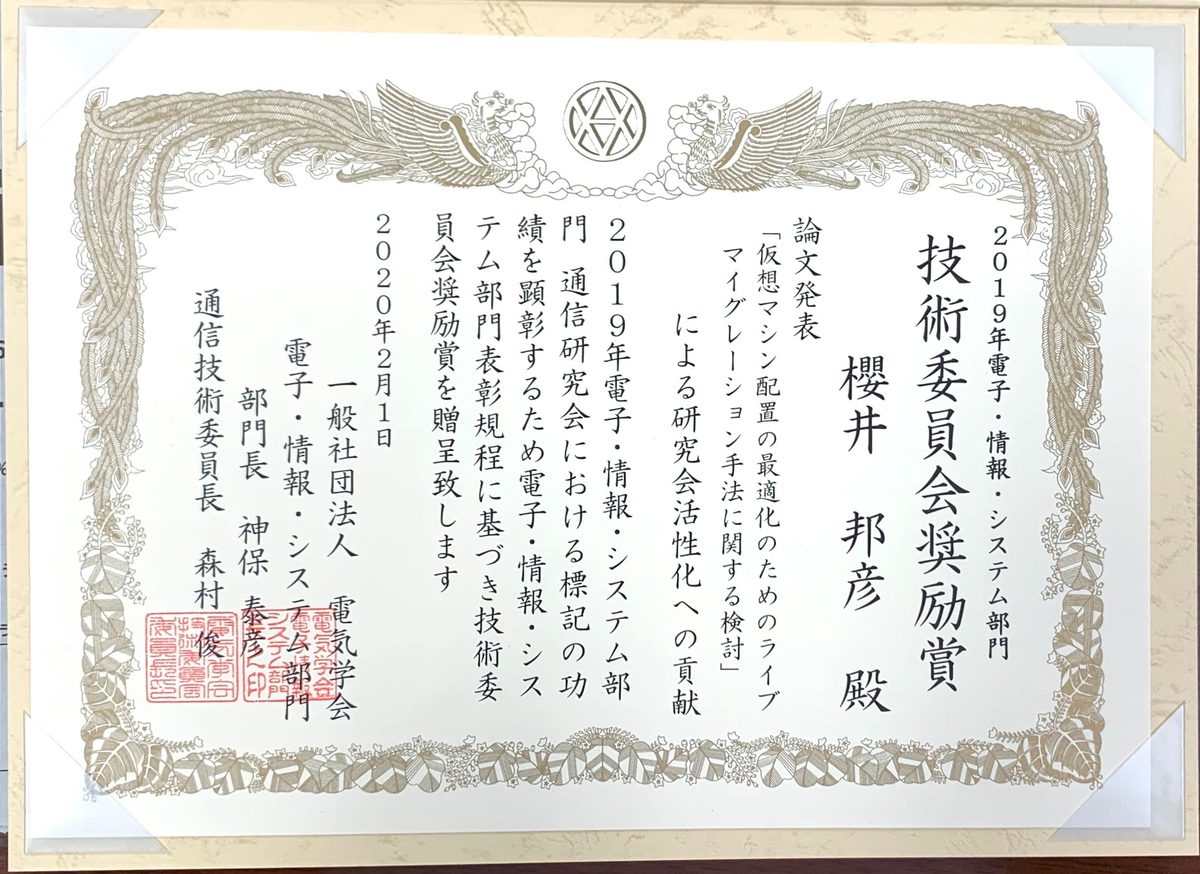 2019年電子・情報・システム部門
技術委員会奨励賞
櫻井 邦彦 殿
論文発表
「仮想マシン配置の最適化のためのライブ
マイグレーション手法に関する検討」
による研究会活性化への貢献
2019年電子・情報・システム部
門 通信研究会における標記の功
績を顕彰するため電子・情報・シス
テム部門表彰規程に基づき技術委
員会奨励賞を贈呈致します
2020年2月1日
一般社団法人 電気学会
電子・情報・システム部門
部門長 神保 泰彦
通信技術委員長 森村 俊